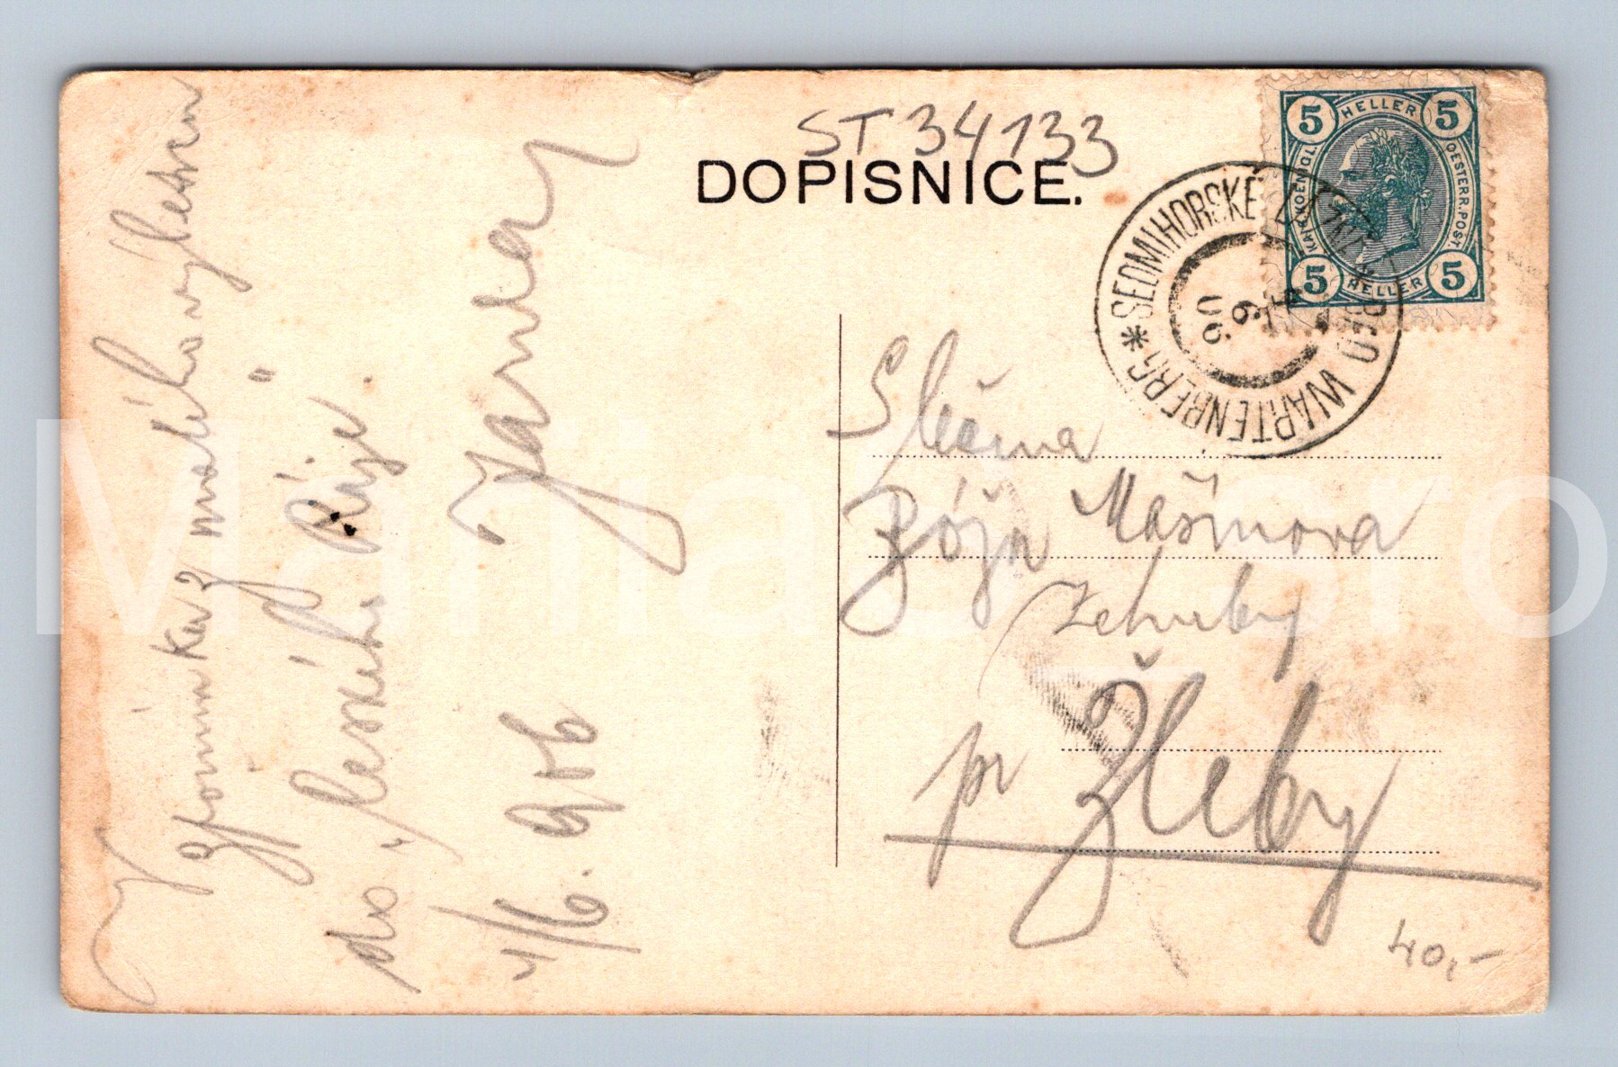 ST 34133
DOPISNICE.
5 HELLER 5
KAIS. KOENIGL.
OESTERR. POST
5 HELLER 5
* SEDMIHORSKÉ LÁZNĚ *
BAD WARTENBERG
6
06
Vzpomínka z malého výletu
do „českého Ráje."
4/6. 906
Slečna
Róža Mašínova
Zehuby
pr Žleby
40,-